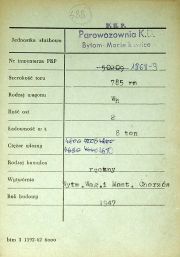 688
K.B.P.
Jednostka służbowa
Parowozownia K.D.
Bytom-Maciejkowice
Nr inwentarza PKP
1868-3
Szerokość toru
785 mm
Rodzaj wagonu
Ilość osi
2
Ładowność w t
8 ton
Ciężar własny
Rodzaj hamulca
ręczny
Wytwórnia
Wag. i Most. Chorzów
Rok budowy
1947